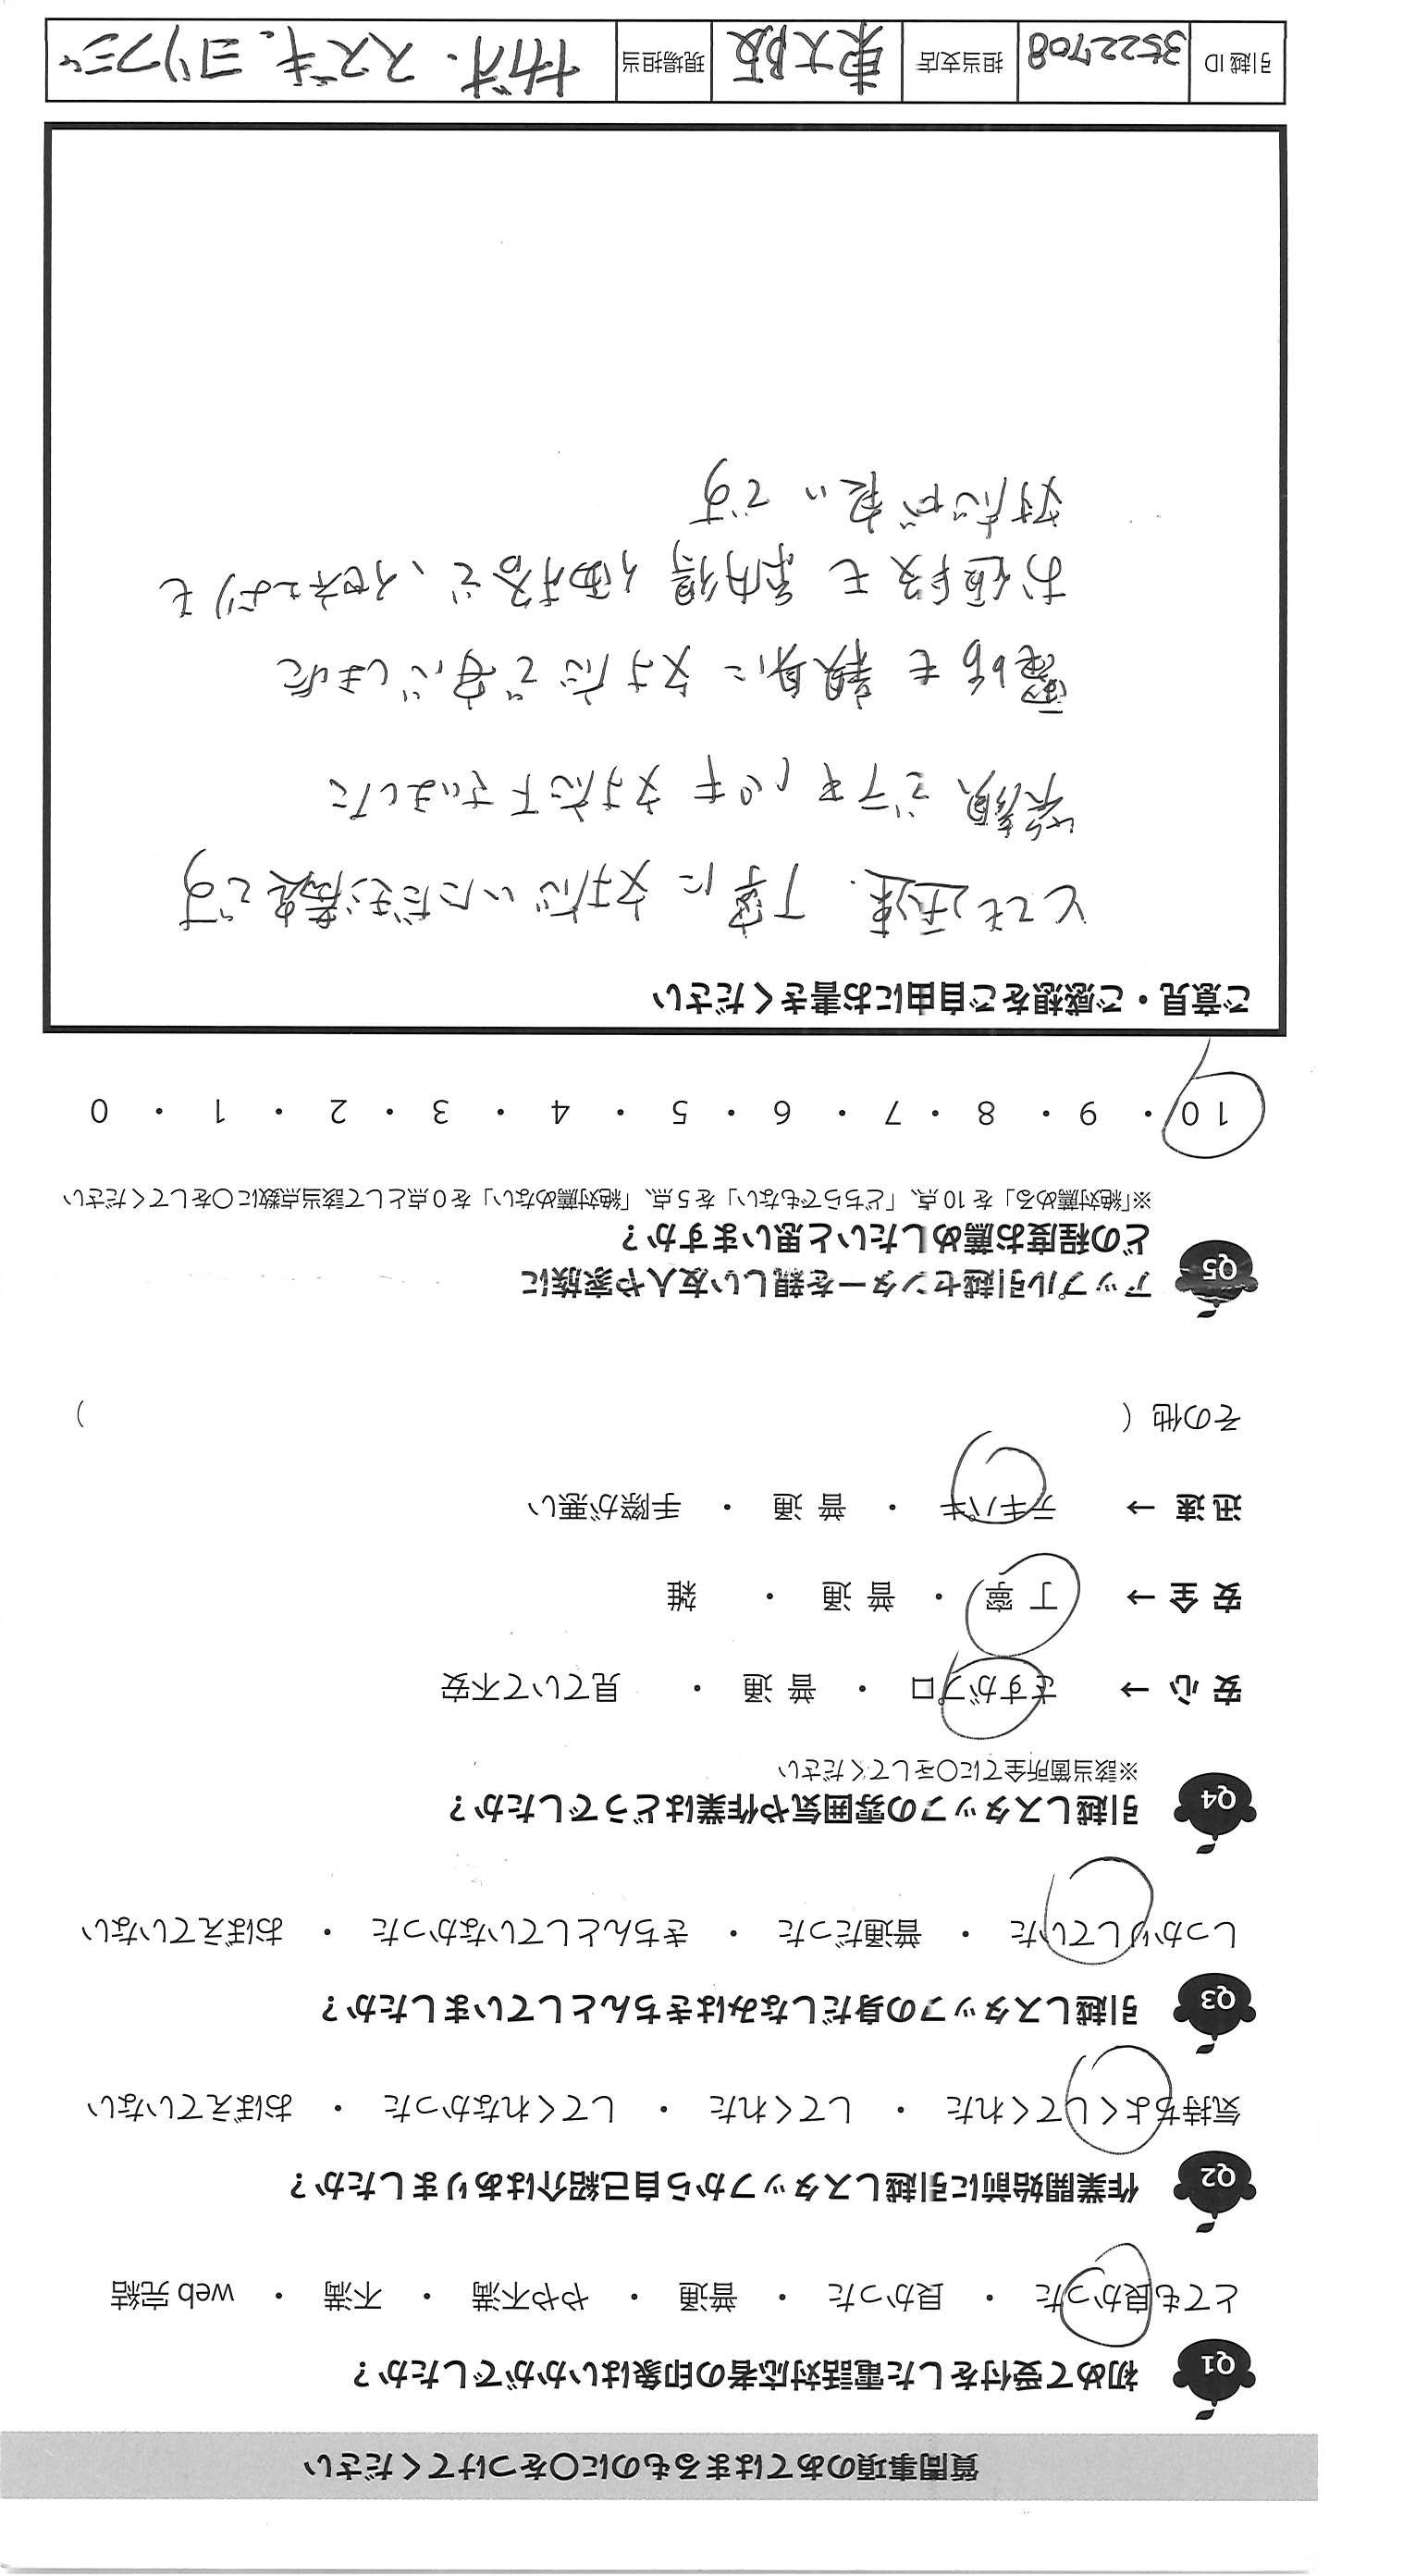 質問事項のあてはまるものに〇をつけてください
Q1 初めて受付をした電話対応者の印象はいかがでしたか？
とても良かった ・ 良かった ・ 普通 ・ やや不満 ・ 不満 ・ web 完結
Q2 作業開始前に引越しスタッフから自己紹介はありましたか？
気持ちよくしてくれた ・ してくれた ・ してくれなかった ・ おぼえていない
Q3 引越しスタッフの身だしなみはきちんとしていましたか？
しっかりしていた ・ 普通だった ・ きちんとしていなかった ・ おぼえていない
Q4 引越しスタッフの雰囲気や作業はどうでしたか？
※該当箇所全てに〇をしてください
安 心 → さすがプロ ・ 普 通 ・ 見ていて不安
安 全 → 丁 寧 ・ 普 通 ・ 雑
迅 速 → テキパキ ・ 普 通 ・ 手際が悪い
その他（ ）
Q5 アップル引越センターを親しい友人や家族に
どの程度お薦めしたいと思いますか？
※「絶対薦める」を 10 点、「どちらでもない」を 5 点、「絶対薦めない」を 0 点として該当点数に〇をしてください
10 ・ 9 ・ 8 ・ 7 ・ 6 ・ 5 ・ 4 ・ 3 ・ 2 ・ 1 ・ 0
ご意見・ご感想をご自由にお書きください
とても迅速、丁寧に対応いただき満足です
笑顔でテキパキ対応下さいました
電話も親身に対応で安心しました
お値段も納得価格で、他社よりも
対応が良いです
引越 ID 3522708 担当支店 東大阪 現場担当 ナガオ・スズキ・ヨリフジ